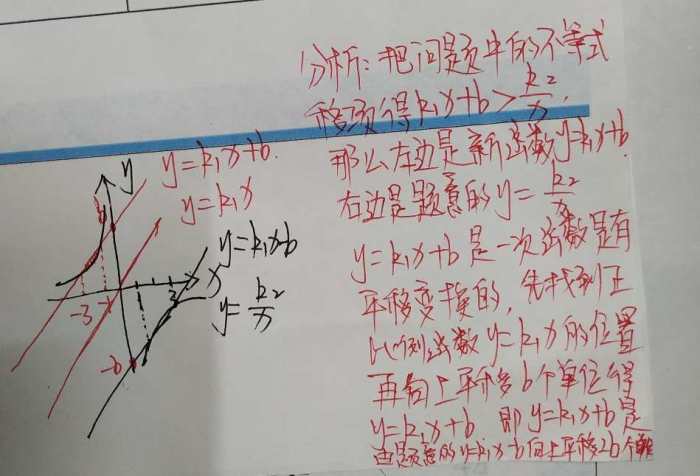 分析:把问题中的不等式
移项得k₁x+b>k₂/x,
那么左边是新函数y=k₁x+b,
右边是题意的y=k₂/x
y=k₁x+b是一次函数是有
平移变换的,先找到正
比例函数y=k₁x的位置
再向上平移b个单位得
y=k₁x+b 即y=k₁x+b是
由题意的y=k₁x-b向上平移2b个单位
y=k₁x+b.
y=k₁x
y
b
y=k₁x-b
x
-3 -1 1 3
y=k₂/x
-b